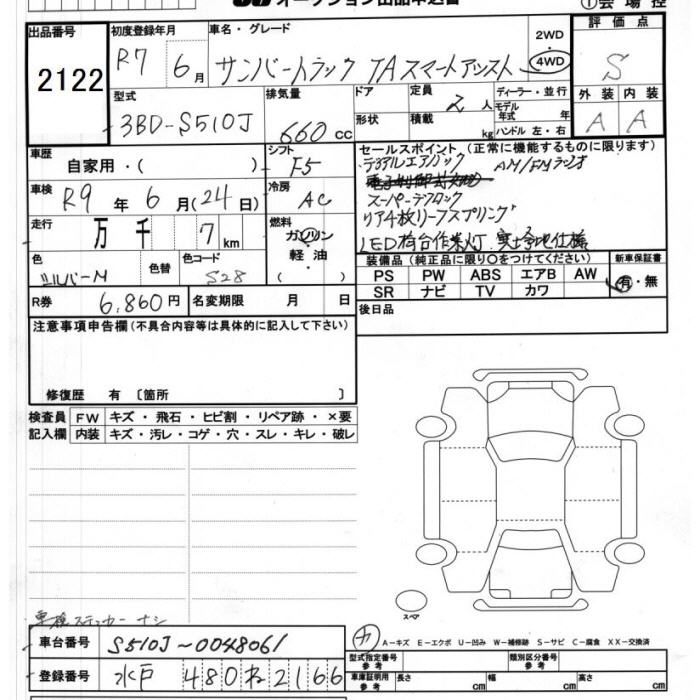 オークション出品申込書
①会場控
出品番号 2122
初度登録年月 R7 6月
車名・グレード サンバートラック TAスマートアシスト
2WD 4WD
評価点 S
外装 A 内装 A
型式 3BD-S510J
排気量 660cc
ドア 形状
定員 2人 積載 kg
ディーラー・並行
モデル年式 年
ハンドル 左・右
車歴 自家用・( )
シフト F5
セールスポイント(正常に機能するものに限ります)
デュアルエアバック AM/FMラジオ
スーパーデフロック
リア4枚リーフスプリング
LED荷台作業灯
車検 R9年6月(24日)
冷房 AC
走行 万 千 7km
燃料 ガソリン 軽油・( )
色 シルバーM 色替
色コード S28
装備品(純正品に限り○をつけてください)
新車保証書 有・無
PS PW ABS エアB AW
SR ナビ TV カワ
R券 6,860円
名変期限 月 日
後日品
注意事項申告欄(不具合内容等は具体的に記入して下さい)
修復歴 有〔箇所 〕
検査員記入欄
FW キズ・飛石・ヒビ割・リペア跡・×要
内装 キズ・汚レ・コゲ・穴・スレ・キレ・破レ
スペア
車検ステッカーナシ
A-キズ E-エクボ U-凹み W-補修跡 S-サビ C-腐食 XX-交換済
車台番号 S510J-0048061
型式指定番号 参考
類別区分番号 参考
登録番号 水戸 480 ね 2166
車庫証明用 参考 長さ cm 幅 cm 高さ cm